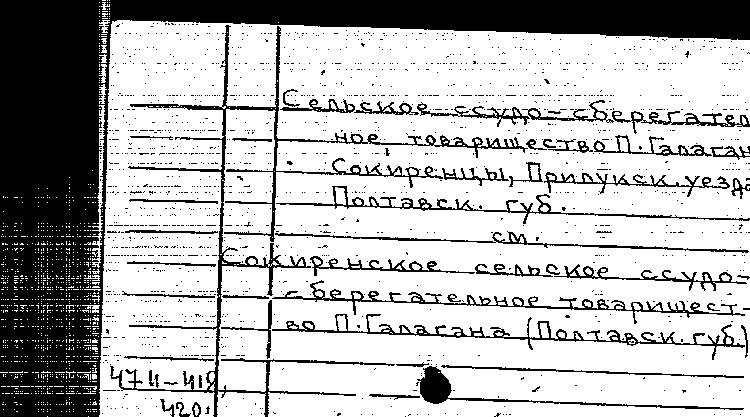 Сельское ссудо-сберегатель
ное товарищество П. Галаган
Сокиренцы, Прилукск. уезда
Полтавск. губ.
см.
Сокиренское сельское ссудо-
сберегательное товарищест-
во П. Галагана (Полтавск. губ.)
420.